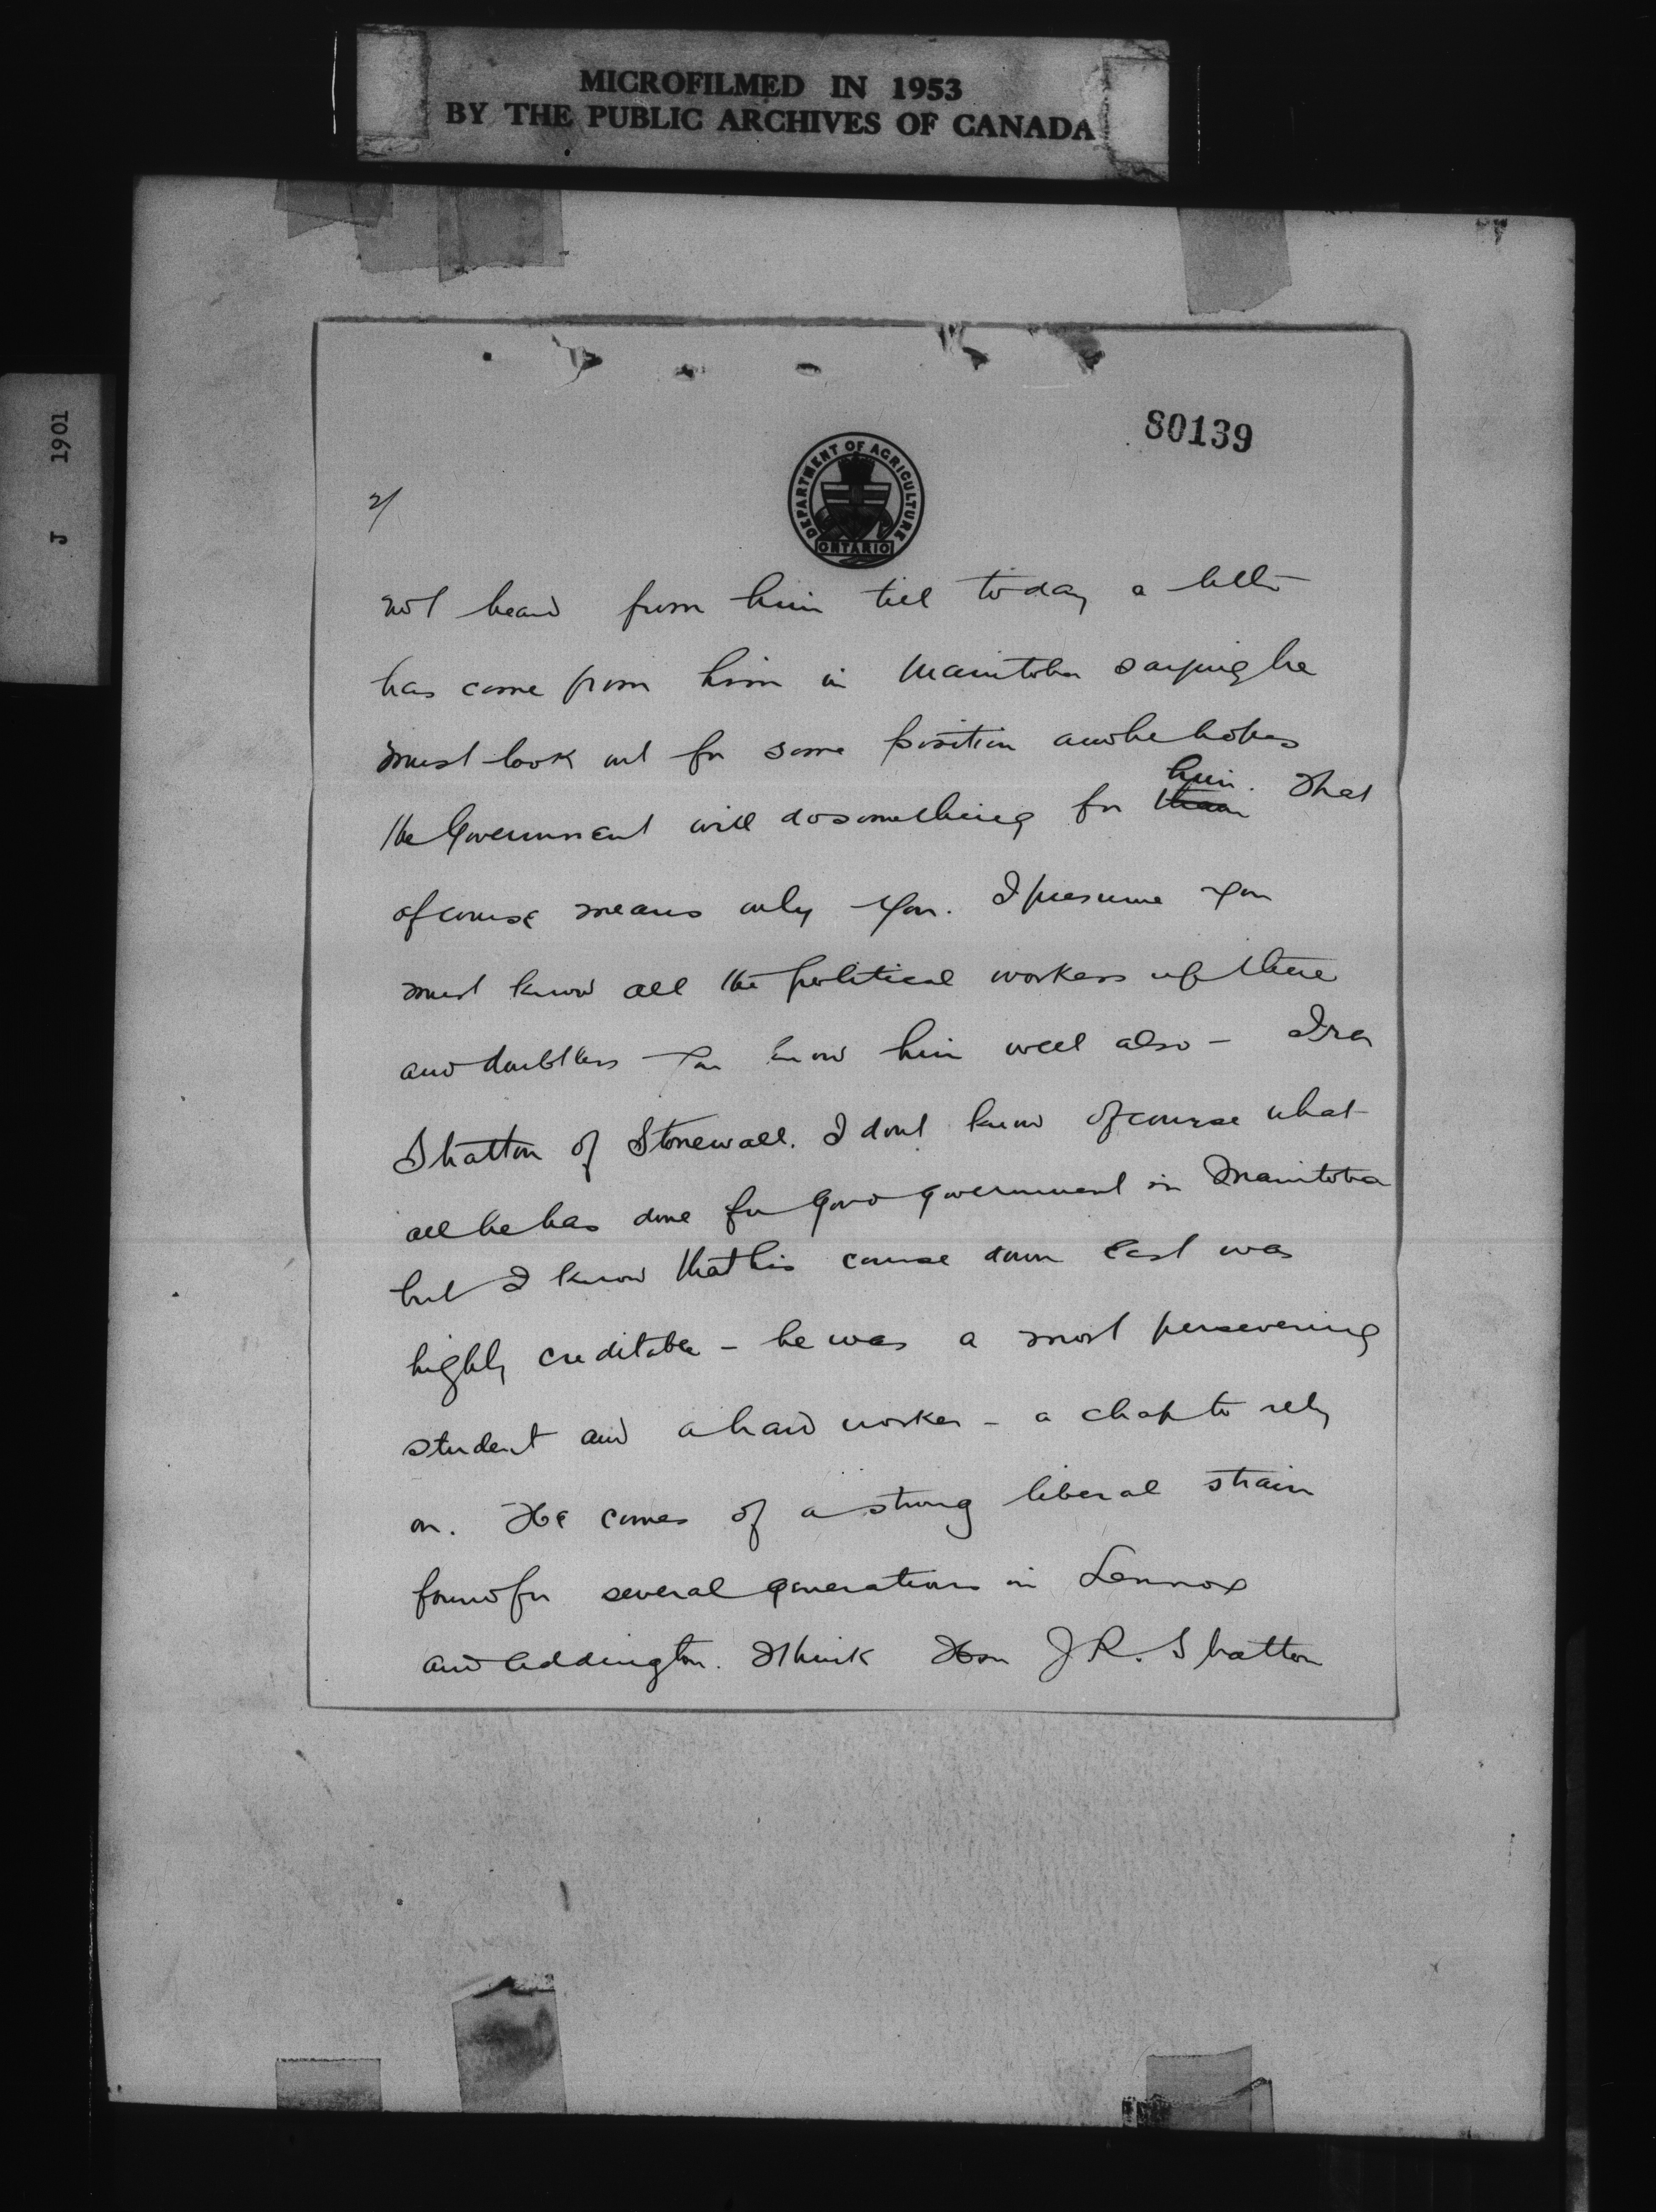 MICROFILMED IN 1953
BY THE PUBLIC ARCHIVES OF CANADA
J 1901
80139
DEPARTMENT OF AGRICULTURE
ONTARIO
2/
not heard from him till today a letter
has come from him in Manitoba saying he
must look out for some position and he hopes
him.
the Government will do something for them That
of course means only you. I presume you
must know all the political workers up there
and doubtless you know him well also - Ira
Stratton of Stonewall. I dont know of course what
all he has done for good government in Manitoba
but I know that his course down east was
highly creditable - he was a most persevering
student and a hard worker - a chap to rely
on. He comes of a strong liberal strain
found for several generations in Lennox
and Addington. I think Hon J.R. Stratton